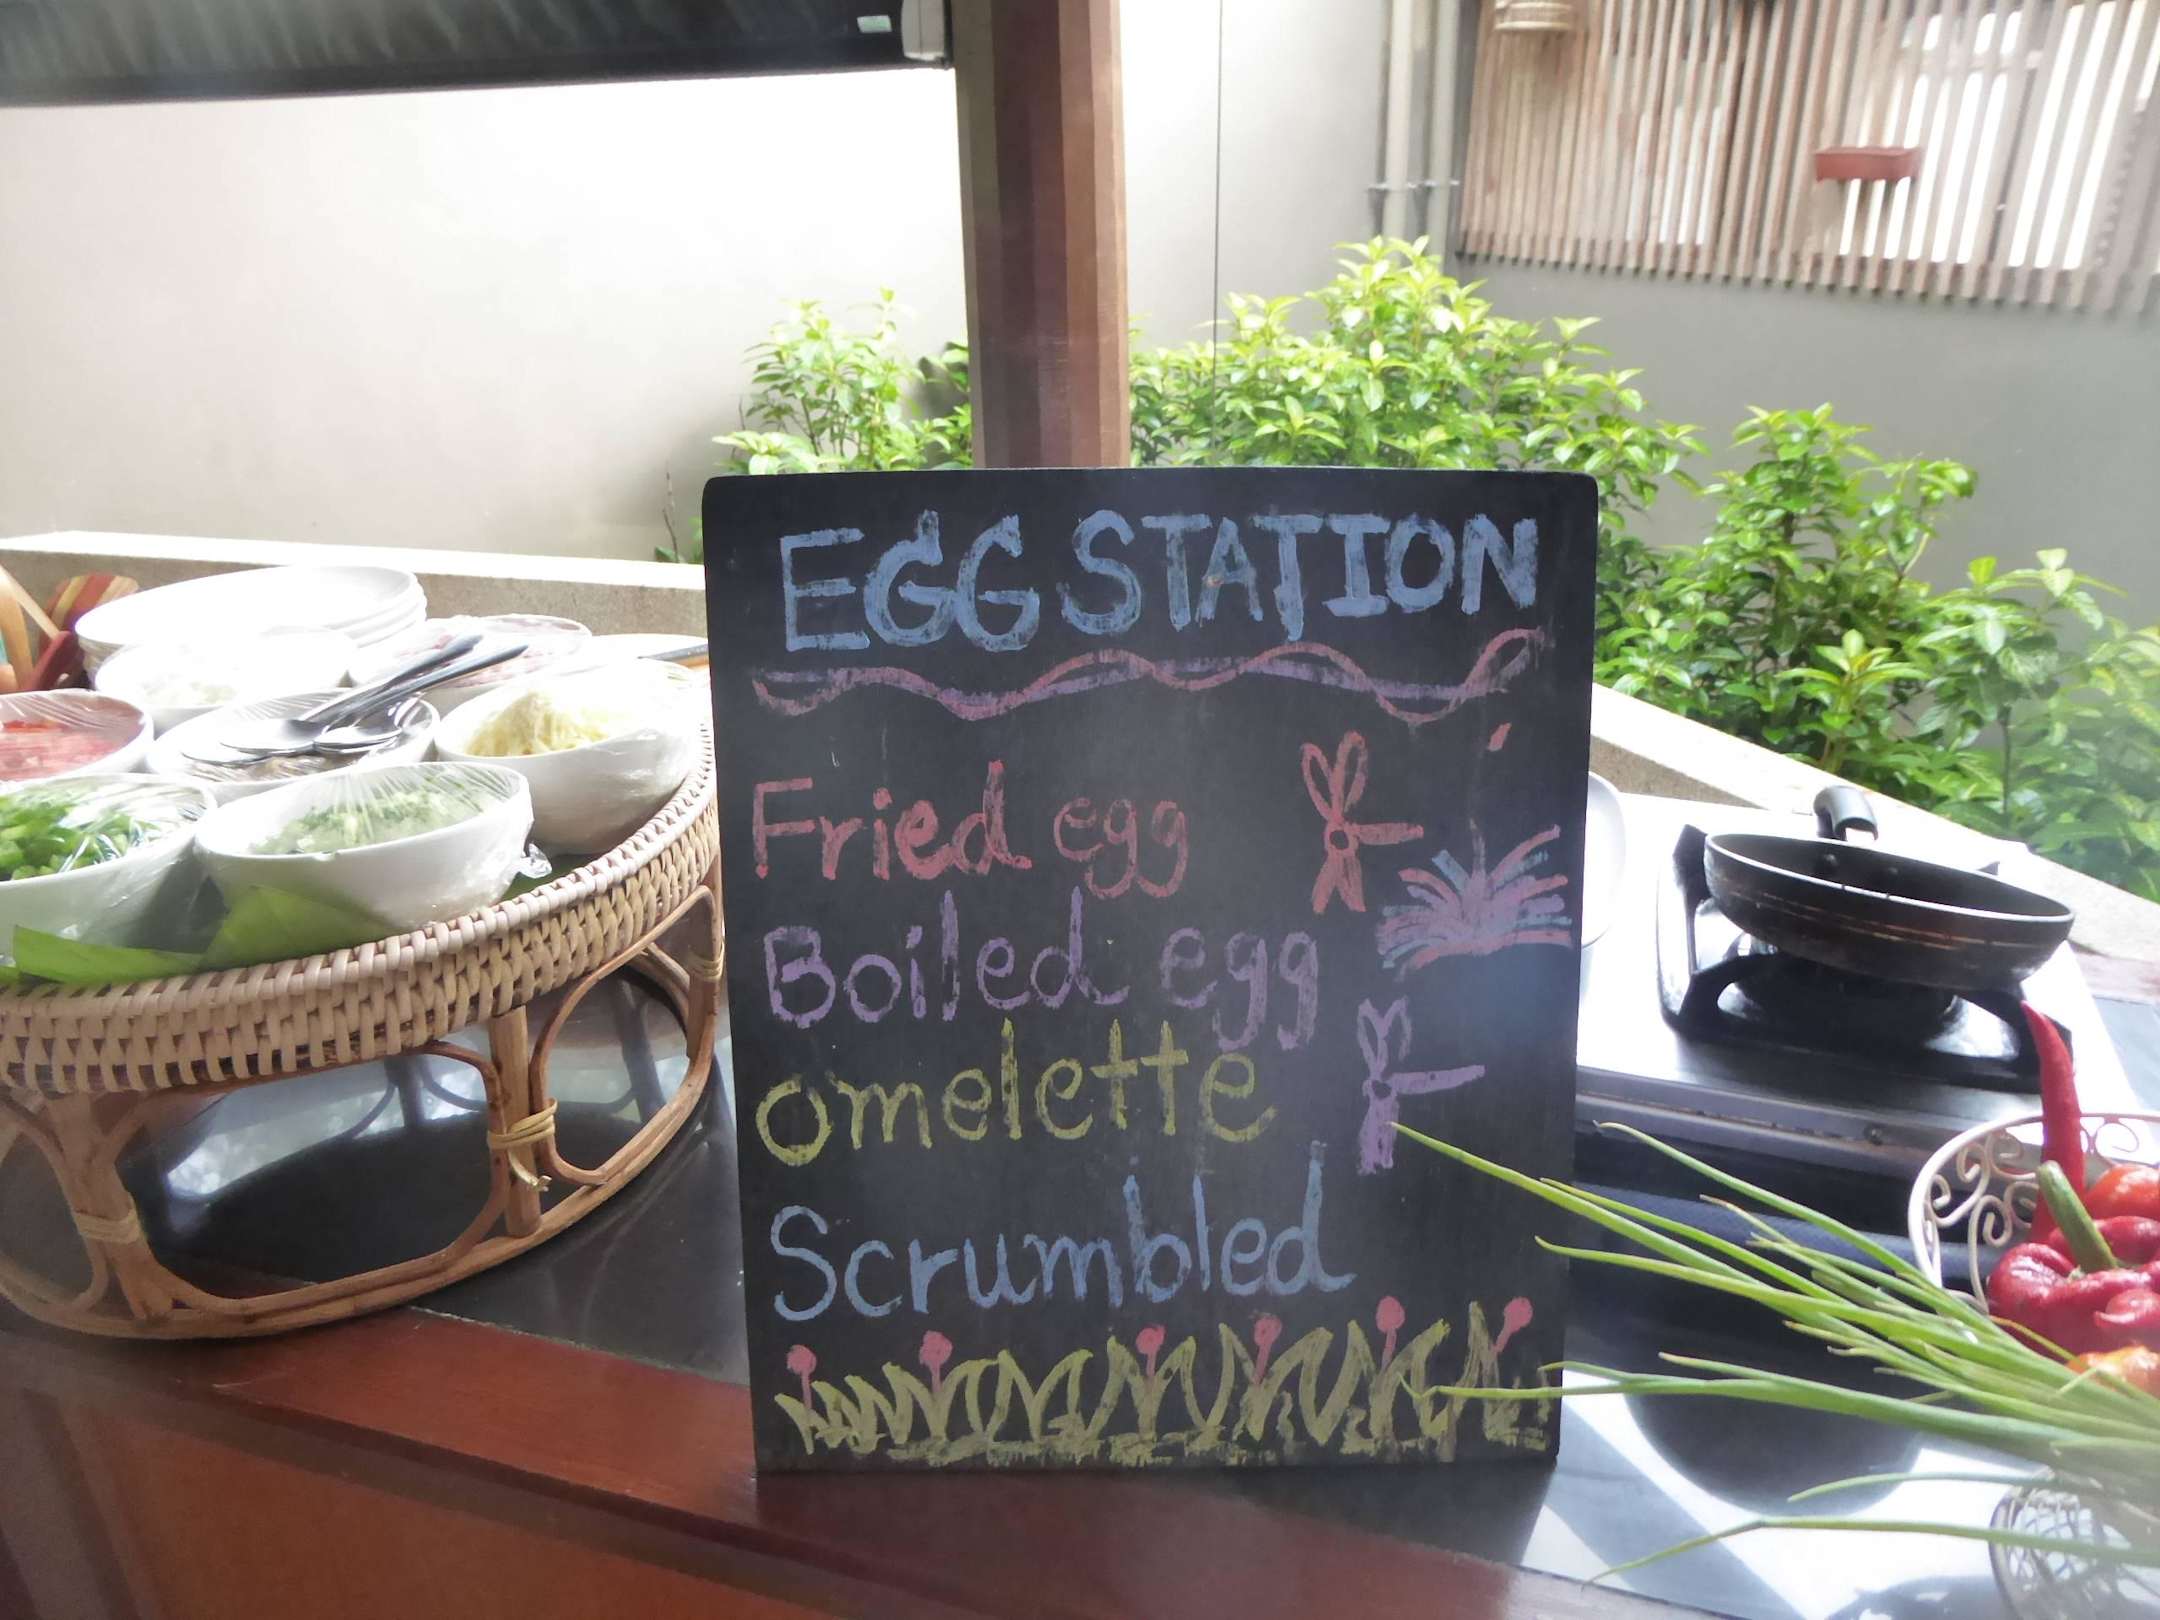 EGG STATION
Fried egg
Boiled egg
omelette
Scrumbled